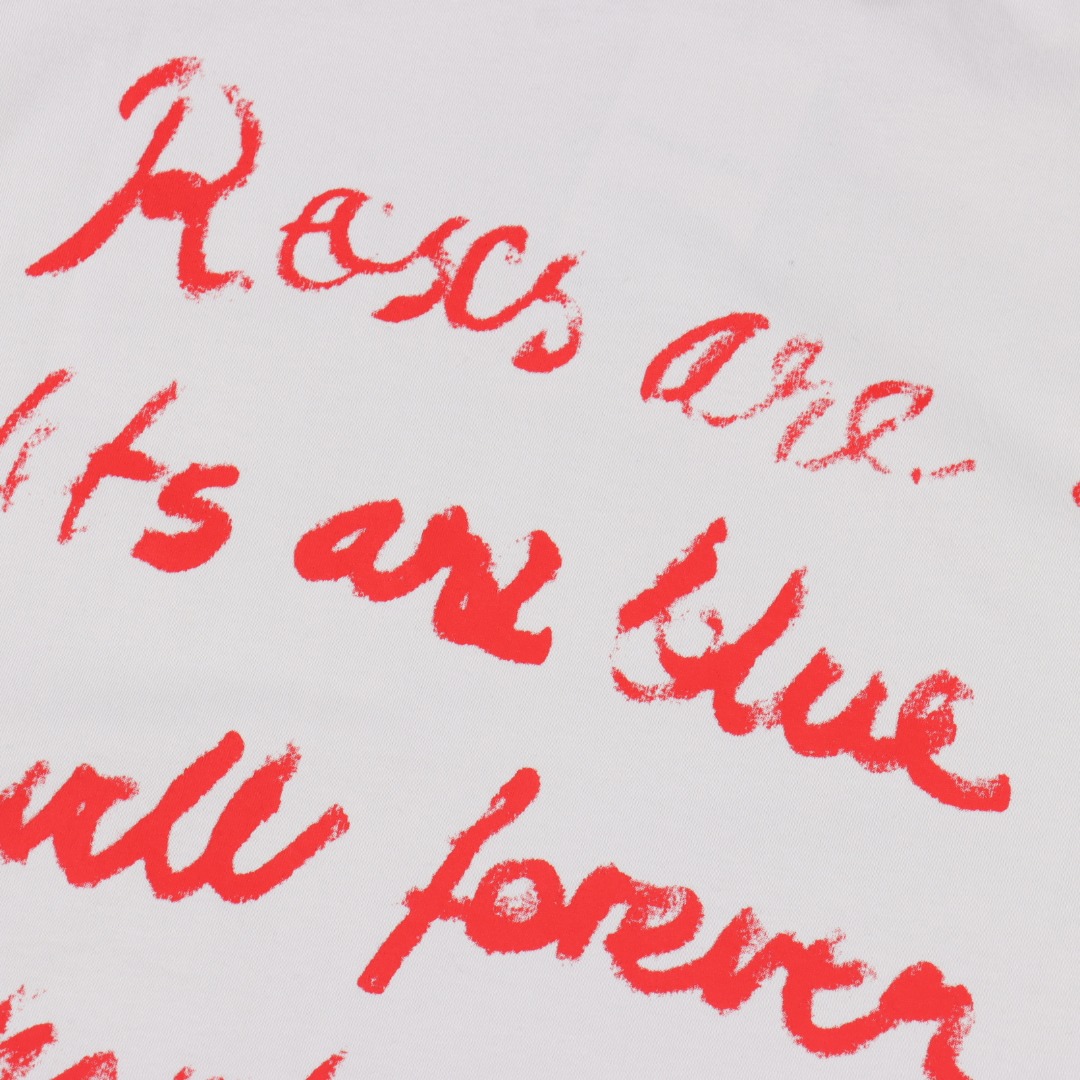 Roses are.-
ts are blue
will forever